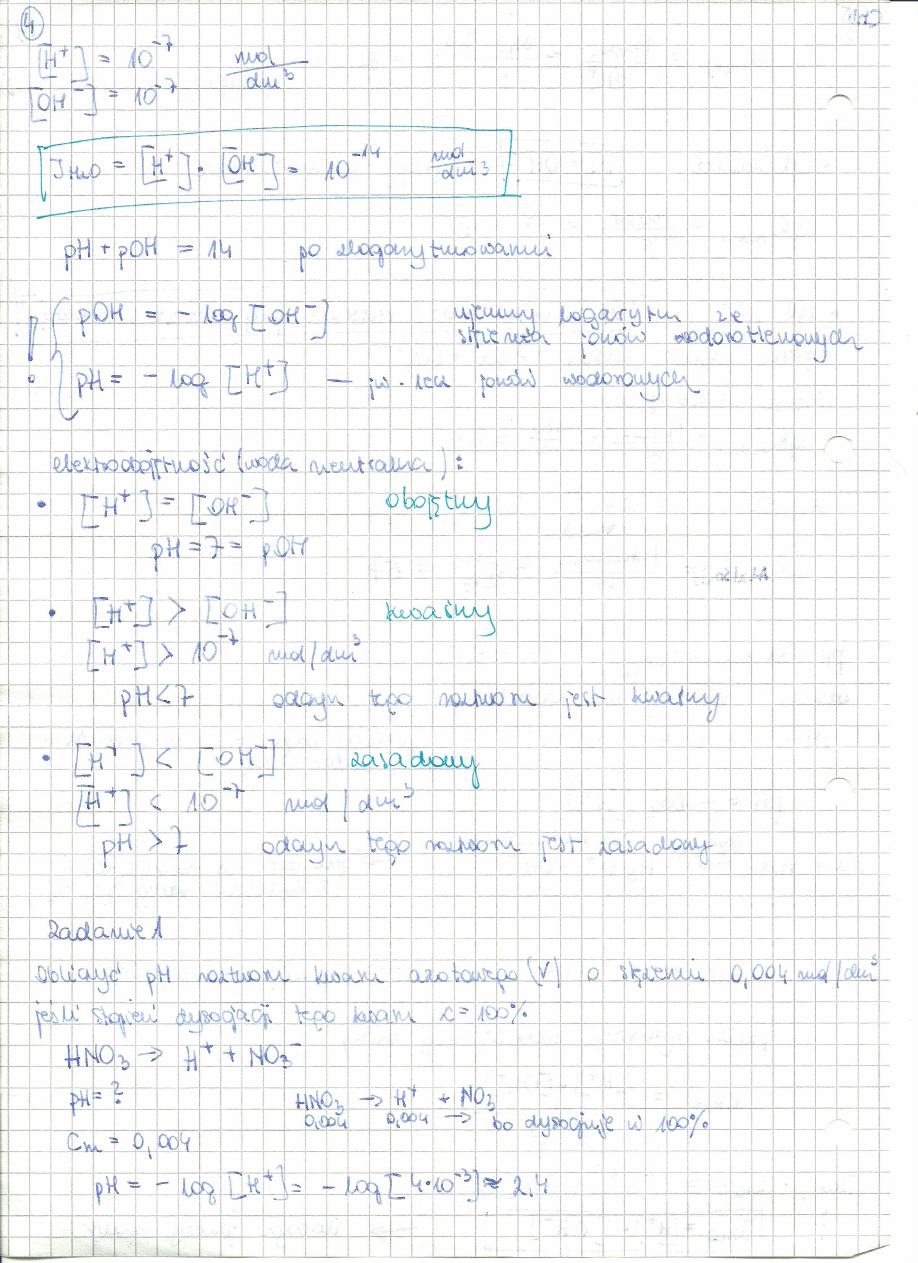 4
[H⁺] = 10⁻⁷ mol/dm³
[OH⁻] = 10⁻⁷
J H₂O = [H⁺] · [OH⁻] = 10⁻¹⁴ mol/dm³
pH + pOH = 14 po zlogarytmowaniu
pOH = - log [OH⁻] ujemny logarytm ze
stężenia jonów wodorotlenowych
pH = - log [H⁺] — jw. lecz jonów wodorowych
elektroobojętność (woda neutralna):
• [H⁺] = [OH⁻] obojętny
pH = 7 = pOH
• [H⁺] > [OH⁻] kwaśny
[H⁺] > 10⁻⁷ mol/dm³
pH < 7 odczyn tego roztworu jest kwaśny
• [H⁺] < [OH⁻] zasadowy
[H⁺] < 10⁻⁷ mol/dm³
pH > 7 odczyn tego roztworu jest zasadowy
Zadanie 1
Obliczyć pH roztworu kwasu azotowego (V) o stężeniu 0,004 mol/dm³
jeśli stopień dysocjacji tego kwasu α = 100%
HNO₃ → H⁺ + NO₃⁻
pH = ? HNO₃ → H⁺ + NO₃
0,004 0,004 → bo dysocjuje w 100%
Cm = 0,004
pH = - log [H⁺] = - log [4·10⁻³] ≈ 2,4